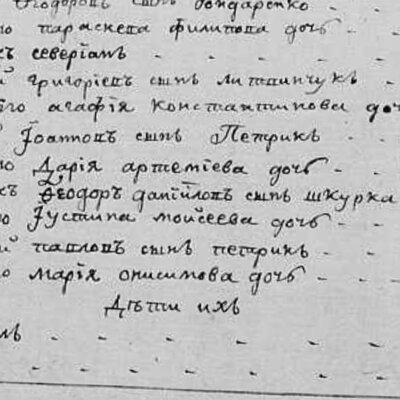 Ѳеодоровъ сынъ бондаренко
го параскева филипова дочь
къ северіанъ
й григоріевъ сынъ литвинчукъ
его агафія константинова до
й Іоанновъ сынъ Петрикъ
го Дарія артеміева дочь
къ Ѳеодоръ даніиловъ сынъ шкурка
го Іустина моисеева дочь
й павловъ сынъ петрикъ
го марія онисимова дочь
Дѣти ихъ
лъ